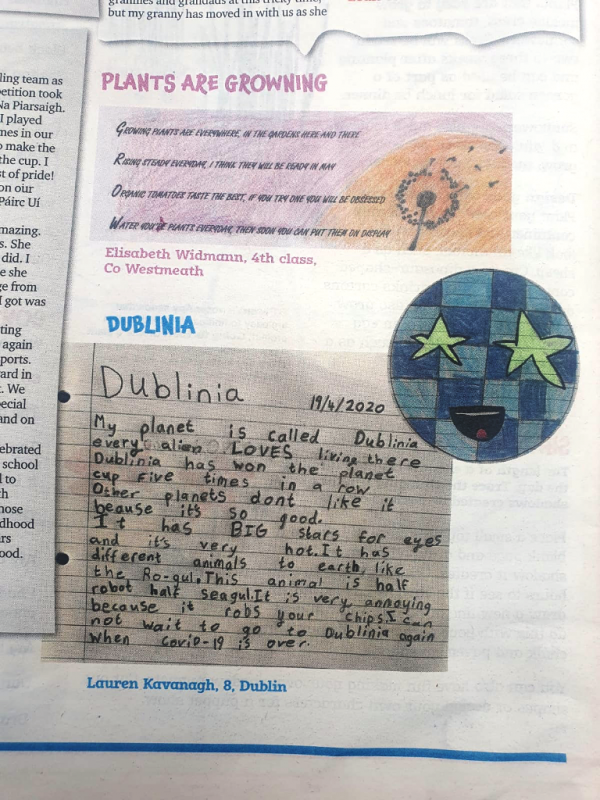 grannies and grandads at this tricky time,
but my granny has moved in with us as she
ling team as
etition took
Na Piarsaigh.
I played
mes in our
o make the
the cup. I
st of pride!
on our
Páirc Uí
mazing.
s. She
did. I
e she
ge from
I got was
ting
again
ports.
ard in
. We
ecial
and on
ebrated
school
l to
th
hose
dhood
rs
ood.
PLANTS ARE GROWNING
GROWING PLANTS ARE EVERYWHERE, IN THE GARDENS HERE AND THERE
RISING STEADY EVERYDAY, I THINK THEY WILL BE READY IN MAY
ORGANIC TOMATOES TASTE THE BEST, IF YOU TRY ONE YOU WILL BE OBSESSED
WATER YOU'RE PLANTS EVERYDAY, THEN SOON YOU CAN PUT THEM ON DISPLAY
Elisabeth Widmann, 4th class,
Co Westmeath
DUBLINIA
Dublinia
19/4/2020
My planet is called Dublinia
every alien LOVES living there
Dublinia has won the planet
cup five times in a row
Other planets dont like it
beause it's so good.
It has BIG stars for eyes
and it's very hot.It has
different animals to earth like
the Ro-gul.This animal is half
robot half seagul.It is very annoying
because it robs your chips.I can
not wait to go to Dublinia again
when COVID-19 is over.
Lauren Kavanagh, 8, Dublin